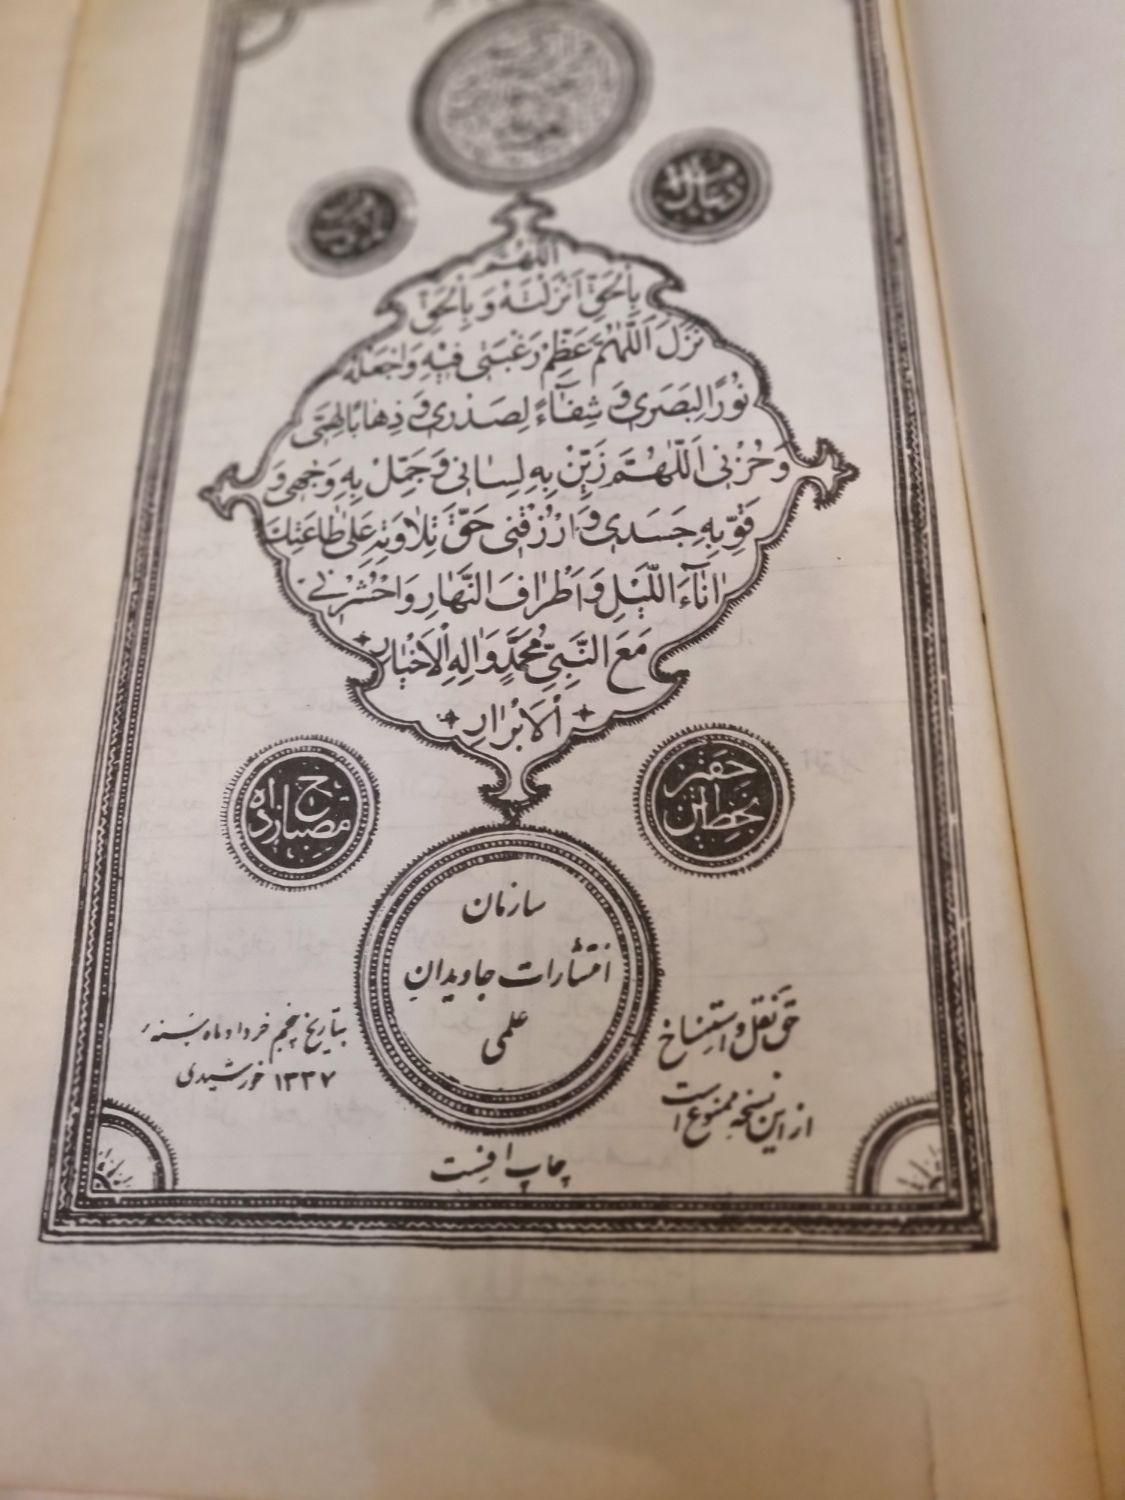 اللهم
بِالْحَقِّ اَنْزَلْتَهُ وَ بِالْحَقِّ
نَزَلَ اَللّهُمَّ عَظِّمْ رَغْبَتی فیهِ وَاجْعَلْهُ
نُورًا لِبَصَری وَ شِفآءً لِصَدْری وَ ذِهابًا لِهَمّی
وَ حُزْنی اَللّهُمَّ زَیِّنْ بِهِ لِسانی وَ جَمِّلْ بِهِ وَجْهی وَ
قَوِّ بِهِ جَسَدی وَ ارْزُقْنی حَقَّ تِلاوَتِهِ عَلی طاعَتِكَ
اناآءَ اللَّیْلِ وَ اَطْرافَ النَّهارِ وَاحْشُرْنی
مَعَ النَّبِیِّ مُحَمَّدٍ وَ الِهِ الْاَخْیارِ
الْاَبْرارِ
ح
مصباح زاده
سازمان
انتشارات جاویدانِ
علمی
حق نقل و استنساخ
از این نسخه ممنوع است
بتاریخ پنجم خرداد ماه سنه
۱۳۳۷ خورشیدی
چاپ افست